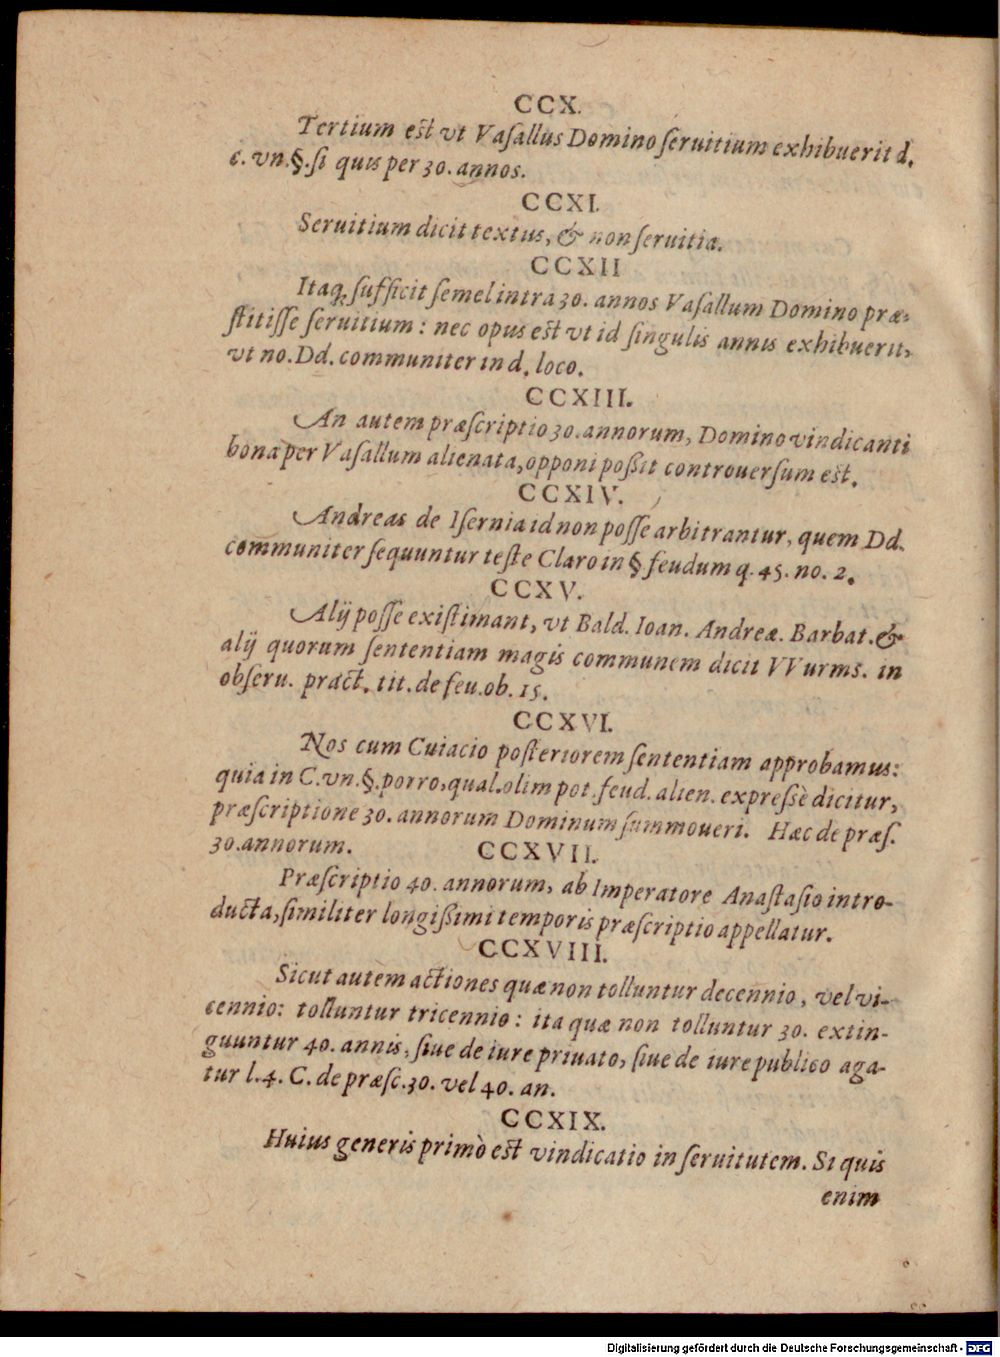 CCX.
Tertium est vt Vaſallus Domino ſeruitium exhibuerit d.
c. vn. §. ſi quis per 30. annos.
CCXI.
Seruitium dicit textus, & non ſeruitia.
CCXII
Itaq; ſufficit ſemel intra 30. annos Vaſallum Domino præ-
ſtitiſſe ſeruitium: nec opus est vt id ſingulis annis exhibuerit,
vt no. Dd. communiter in d. loco.
CCXIII.
An autem præſcriptio 30. annorum, Domino vindicanti
bona per Vaſallum alienata, opponi poßit controuerſum est.
CCXIV.
Andreas de Iſernia id non poſſe arbitrantur, quem Dd.
communiter ſequuntur teſte Claro in § feudum q. 45. no. 2.
CCXV.
Alij poſſe exiſtimant, vt Bald. Ioan. Andreæ. Barbat. &
alij quorum ſententiam magis communem dicit VVurms. in
obſeru. pract. tit. de feu. ob. 15.
CCXVI.
Nos cum Cuiacio poſteriorem ſententiam approbamus:
quia in C. vn. §. porro, qual. olim pot. feud. alien. expreſsè dicitur,
præſcriptione 30. annorum Dominum ſummoueri. Hæc de præſ.
30. annorum.
CCXVII.
Præſcriptio 40. annorum, ab Imperatore Anaſtaſio intro-
ducta, ſimiliter longißimi temporis præſcriptio appellatur.
CCXVIII.
Sicut autem actiones quæ non tolluntur decennio, vel vi-
cennio: tolluntur tricennio: ita quæ non tolluntur 30. extin-
guuntur 40. annis, ſiue de iure priuato, ſiue de iure publico aga-
tur l. 4. C. de præſc. 30. vel 40. an.
CCXIX.
Huius generis primò est vindicatio in ſeruitutem. Si quis
enim
Digitalisierung gefördert durch die Deutsche Forschungsgemeinschaft - DFG